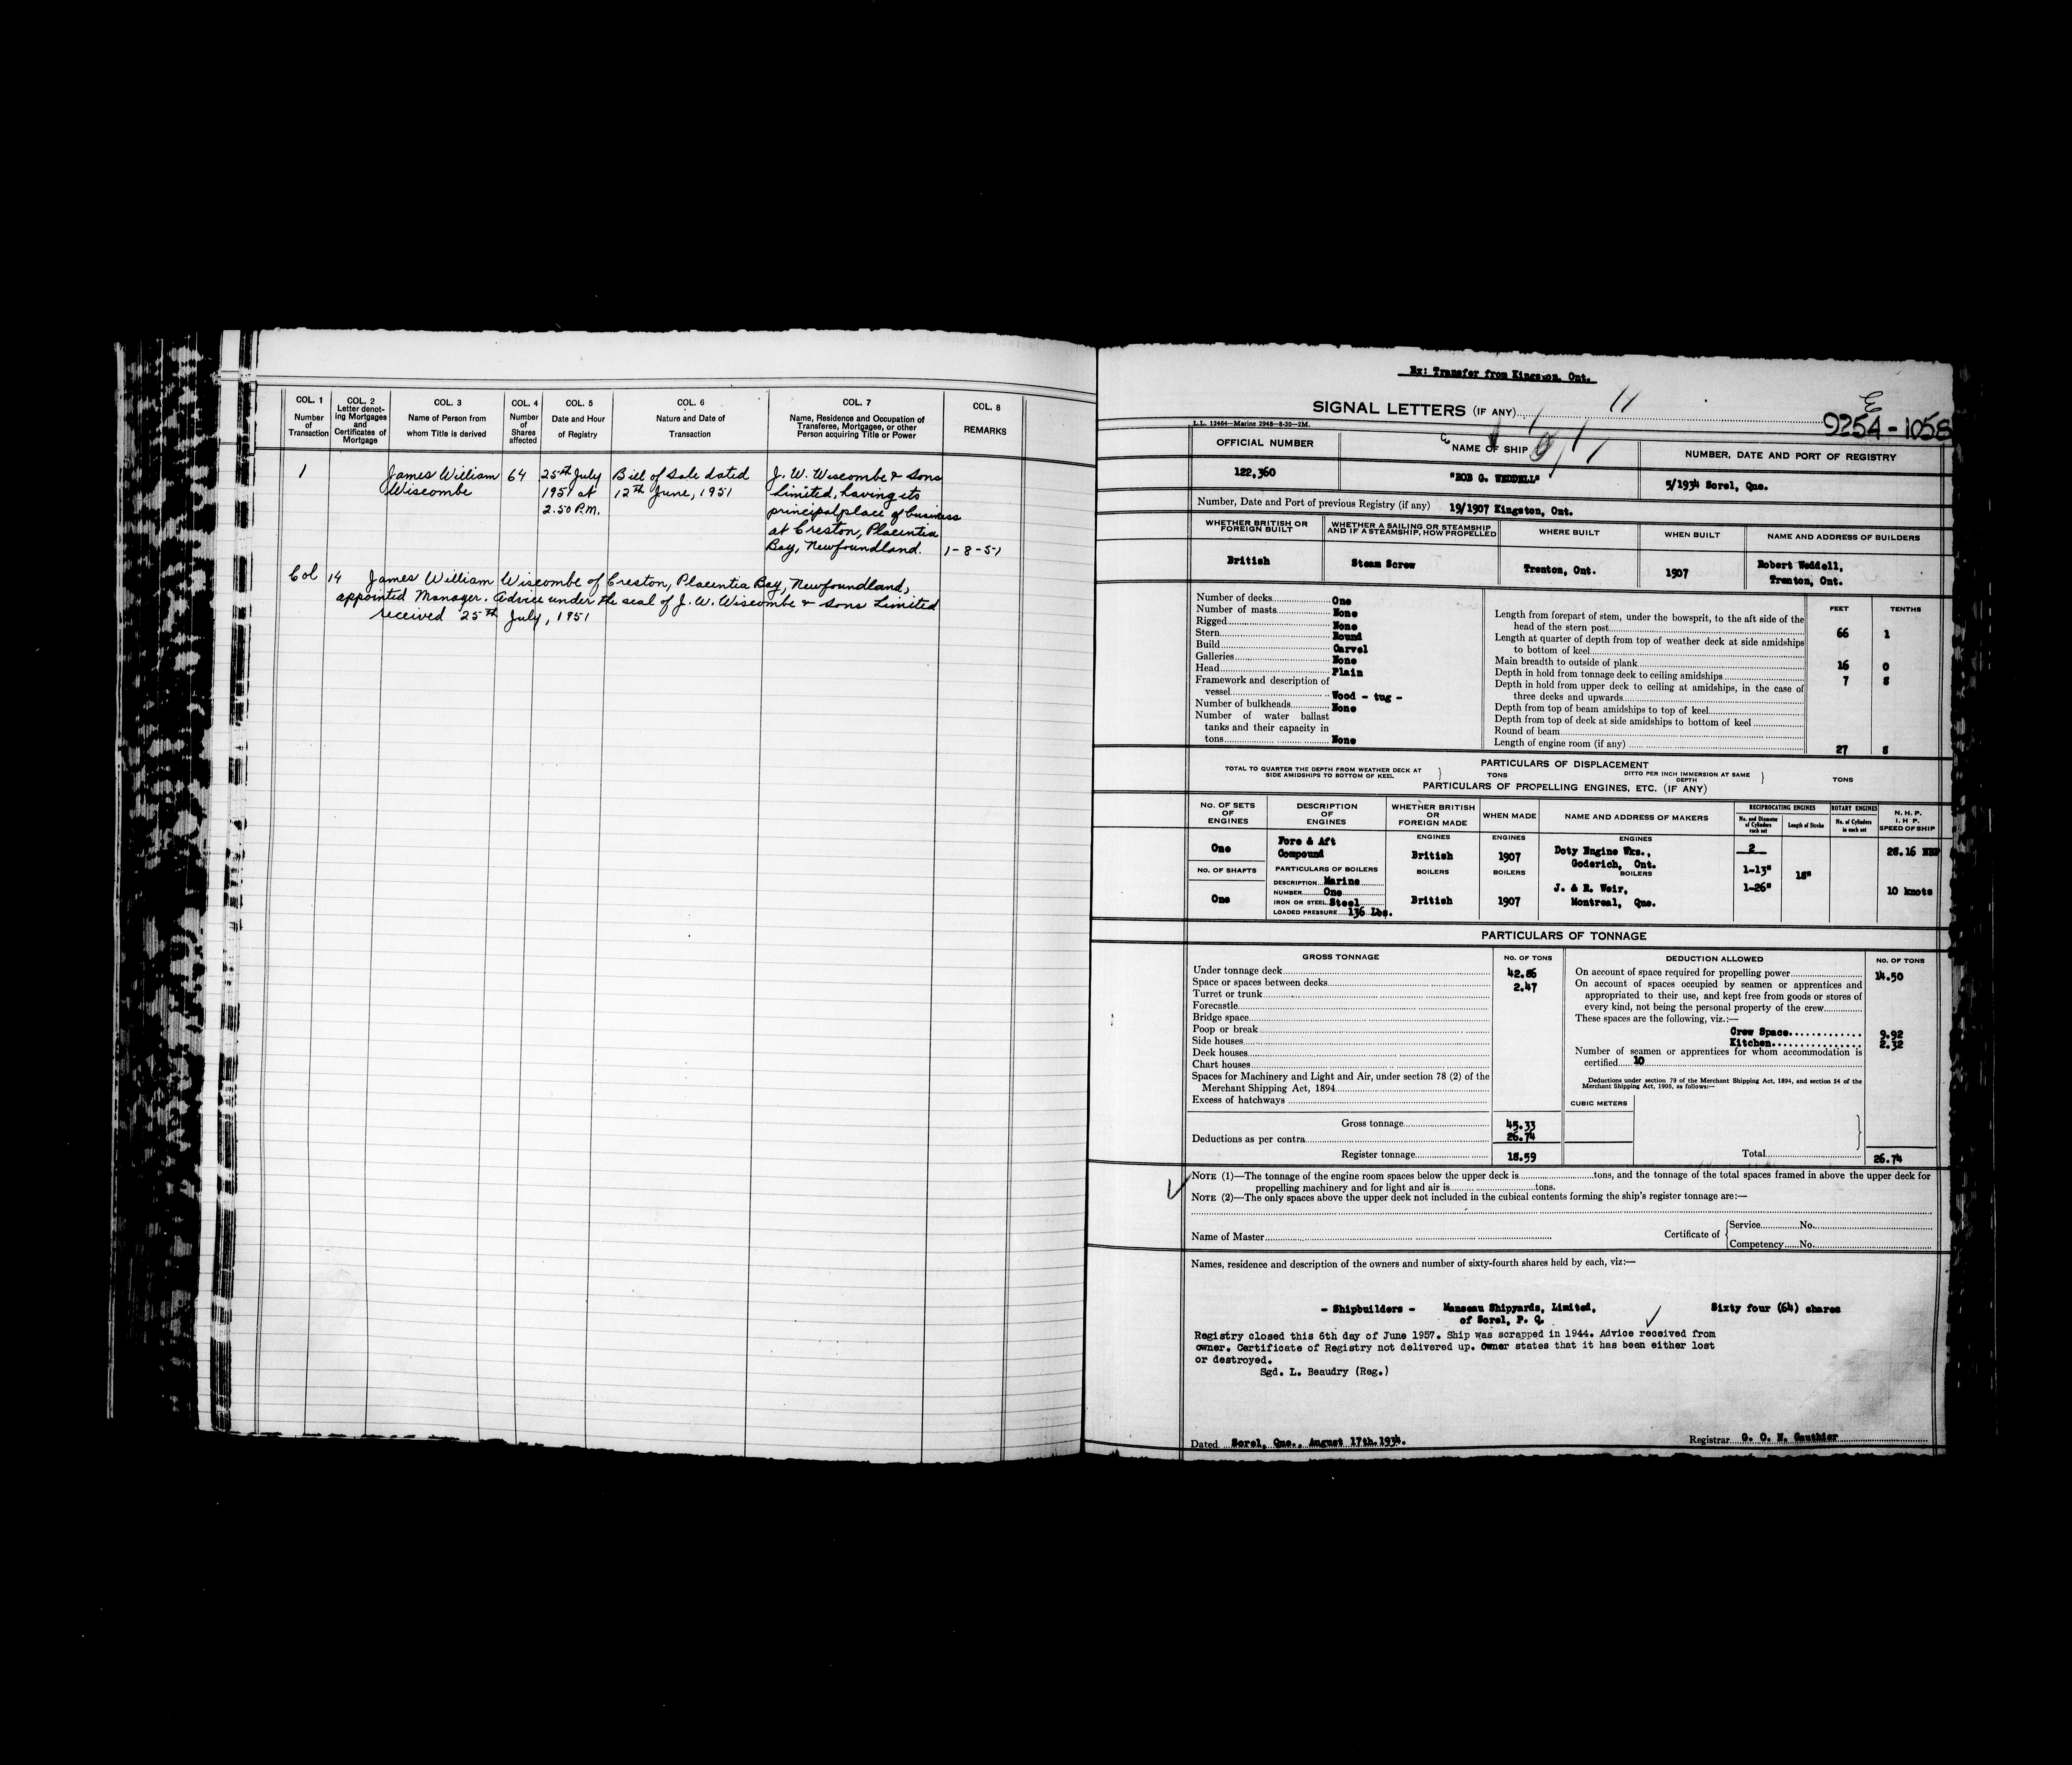 COL. 1 COL. 2 COL. 3 COL. 4 COL. 5 COL. 6 COL. 7 COL. 8
Number of Transaction
Letter denot-
ing Mortgages
and
Certificates of
Mortgage
Name of Person from
whom Title is derived
Number of Shares affected
Date and Hour
of Registry
Nature and Date of
Transaction
Name, Residence and Occupation of
Transferee, Mortgagee, or other
Person acquiring Title or Power
REMARKS
1 James William 64 25th July Bill of Sale dated J. W. Wiscombe & Sons
Wiscombe 1951 at 12th June, 1951 Limited, having its
2.50 P.M. principal place of business
at Creston, Placentia
Bay, Newfoundland. 1-8-51
Col 14 James William Wiscombe of Creston, Placentia Bay, Newfoundland,
appointed Manager. Advice under the seal of J. W. Wiscombe & Sons Limited
received 25th July, 1951
Ex: Transfer from Kingston, Ont.
SIGNAL LETTERS (IF ANY)
9254-1058
L.L. 12464—Marine 2948—8-30—2M.
OFFICIAL NUMBER NAME OF SHIP NUMBER, DATE AND PORT OF REGISTRY
122,360 "ROB G. WEDDELL" 5/1934 Sorel, Que.
Number, Date and Port of previous Registry (if any) 19/1907 Kingston, Ont.
WHETHER BRITISH OR
FOREIGN BUILT
WHETHER A SAILING OR STEAMSHIP
AND IF A STEAMSHIP, HOW PROPELLED
WHERE BUILT WHEN BUILT NAME AND ADDRESS OF BUILDERS
British Steam Screw Trenton, Ont. 1907 Robert Weddell,
Trenton, Ont.
Number of decks One
Number of masts None
Rigged None
Stern Round
Build Carvel
Galleries None
Head Plain
Framework and description of
vessel Wood - tug -
Number of bulkheads None
Number of water ballast
tanks and their capacity in
tons None
FEET TENTHS
Length from forepart of stem, under the bowsprit, to the aft side of the
head of the stern post 66 1
Length at quarter of depth from top of weather deck at side amidships
to bottom of keel
Main breadth to outside of plank 16 0
Depth in hold from tonnage deck to ceiling amidships 7 8
Depth in hold from upper deck to ceiling at amidships, in the case of
three decks and upwards
Depth from top of beam amidships to top of keel
Depth from top of deck at side amidships to bottom of keel
Round of beam
Length of engine room (if any) 27 8
PARTICULARS OF DISPLACEMENT
TOTAL TO QUARTER THE DEPTH FROM WEATHER DECK AT
SIDE AMIDSHIPS TO BOTTOM OF KEEL
TONS
DITTO PER INCH IMMERSION AT SAME
DEPTH
TONS
PARTICULARS OF PROPELLING ENGINES, ETC. (IF ANY)
No. OF SETS
OF
ENGINES
DESCRIPTION
OF
ENGINES
WHETHER BRITISH
OR
FOREIGN MADE
WHEN MADE
NAME AND ADDRESS OF MAKERS
RECIPROCATING ENGINES
No. and Diameter
of Cylinders
each set
Length of Stroke
ROTARY ENGINES
No. of Cylinders
in each set
N. H. P.
I. H P.
SPEED OF SHIP
ENGINES ENGINES ENGINES
One Fore & Aft
Compound British 1907 Doty Engine Wks.,
Goderich, Ont.
2 28.16 NHP
No. OF SHAFTS PARTICULARS OF BOILERS BOILERS BOILERS BOILERS
1-13" 18"
1-26" 10 knots
One
DESCRIPTION Marine
NUMBER One
IRON OR STEEL Steel
LOADED PRESSURE 136 Lbs.
British 1907 J. & R. Weir,
Montreal, Que.
PARTICULARS OF TONNAGE
GROSS TONNAGE No. OF TONS DEDUCTION ALLOWED No. OF TONS
Under tonnage deck 42.86
Space or spaces between decks 2.47
Turret or trunk
Forecastle
Bridge space
Poop or break
Side houses
Deck houses
Chart houses
Spaces for Machinery and Light and Air, under section 78 (2) of the
Merchant Shipping Act, 1894
Excess of hatchways
Gross tonnage 45.33
Deductions as per contra 26.74
Register tonnage 18.59
On account of space required for propelling power 14.50
On account of spaces occupied by seamen or apprentices and
appropriated to their use, and kept free from goods or stores of
every kind, not being the personal property of the crew
These spaces are the following, viz.:—
Crew Space 9.92
Kitchen 2.32
Number of seamen or apprentices for whom accommodation is
certified 10
Deductions under section 79 of the Merchant Shipping Act, 1894, and section 54 of the
Merchant Shipping Act, 1906, as follows:—
CUBIC METERS
Total 26.74
NOTE (1)—The tonnage of the engine room spaces below the upper deck is tons, and the tonnage of the total spaces framed in above the upper deck for
propelling machinery and for light and air is tons.
NOTE (2)—The only spaces above the upper deck not included in the cubical contents forming the ship's register tonnage are:—
Name of Master Certificate of Service No.
Competency No.
Names, residence and description of the owners and number of sixty-fourth shares held by each, viz:—
- Shipbuilders - Manseau Shipyards, Limited, Sixty four (64) shares
of Sorel, P. Q.
Registry closed this 6th day of June 1957. Ship was scrapped in 1944. Advice received from
owner. Certificate of Registry not delivered up. Owner states that it has been either lost
or destroyed.
Sgd. L. Beaudry (Reg.)
Dated Sorel, Que., August 17th. 1934. Registrar G. O. N. Gauthier